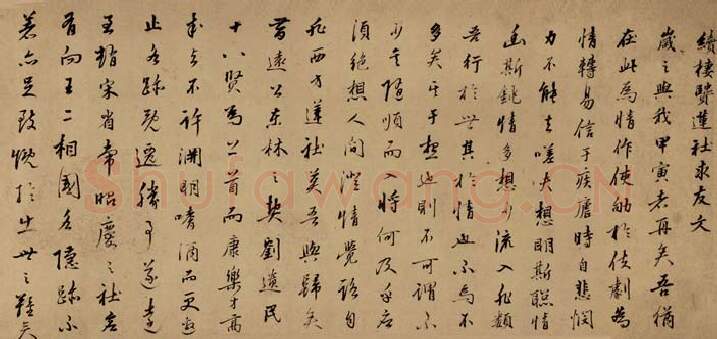 續棲賢蓮社求友文
歲之與我甲寅者再矣吾猶
在此為情作使劬於伎劇為
情轉易信于痎瘧時自悲憫
力不能去嗟夫想明斯聰情
幽斯鈍情多想少流入非類
吾行於世其於情也不為不
多矣其于想也則不可謂不
少矣隨順而入將何及乎應
須絕想人間澄情覺路自
非西方蓮社莫吾與歸矣
昔遠公東林之契劉遺民
十八賢為上首而康樂才高
求與不許淵明嗜酒而更邀
止 跡既遐勝事遂遠
至 宋省常昭慶之社
有向王二相國名隱跡不
著亦足致慨於出世之難矣
Shufawang.CN